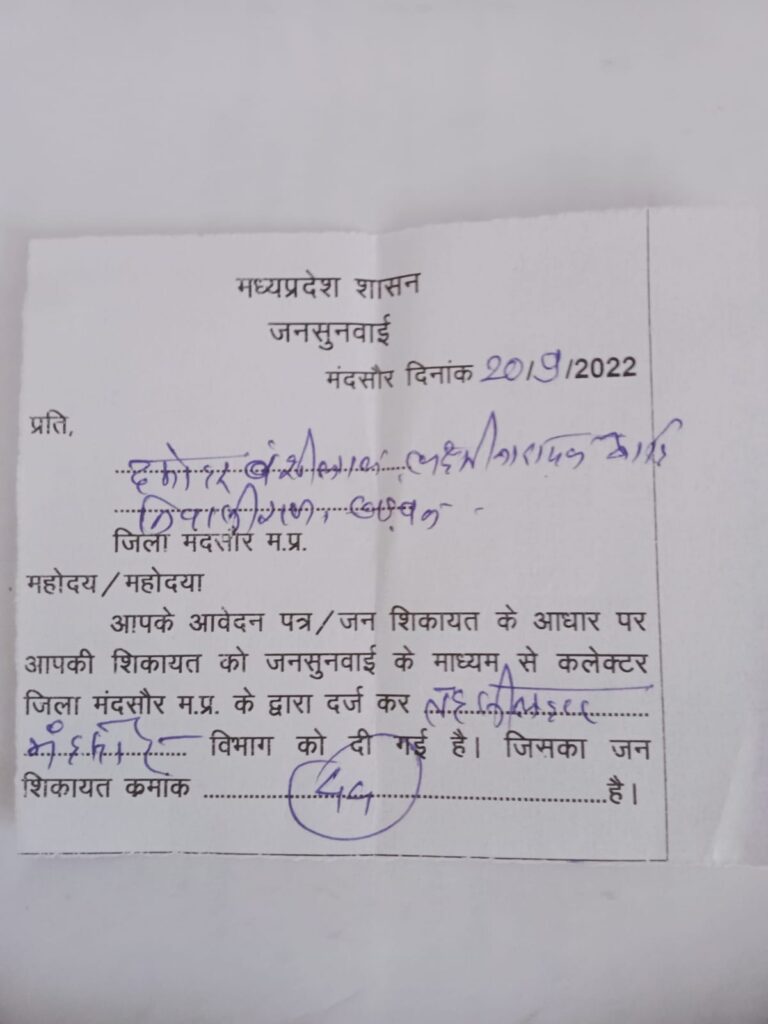 मध्यप्रदेश शासन
जनसुनवाई
मंदसौर दिनांक 20/9/2022
प्रति,
बंशीलाल, लक्ष्मीनारायण
जिला मंदसौर म.प्र.
महोदय/महोदया
आपके आवेदन पत्र/जन शिकायत के आधार पर
आपकी शिकायत को जनसुनवाई के माध्यम से कलेक्टर
जिला मंदसौर म.प्र. के द्वारा दर्ज कर तहसीलदार
मंदसौर विभाग को दी गई है। जिसका जन
शिकायत कमांक है।